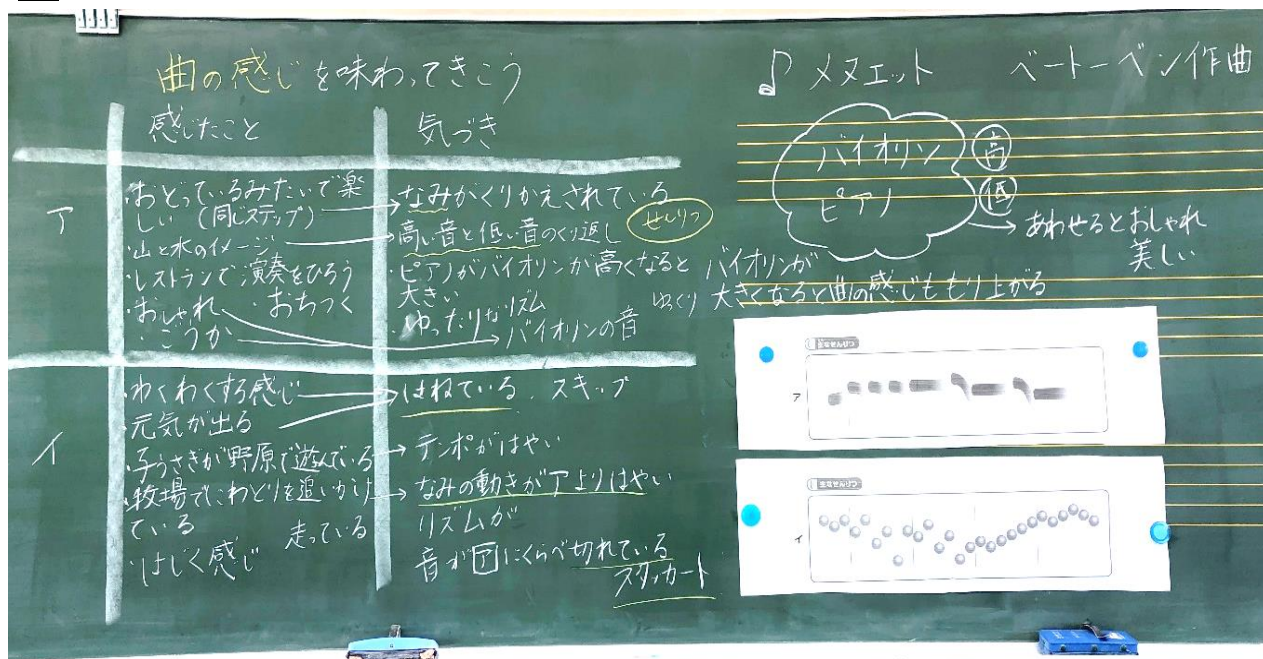 曲の感じを味わってきこう
感じたこと
気づき
ア
・おどっているみたいで楽
しい (同じステップ)
・山と水のイメージ
・レストランで演奏をひろう
・おしゃれ ・おちつく
・ごうか
なみがくりかえされている
高い音と低い音のくり返し
せんりつ
・ピアノがバイオリンが高くなると
大きい
・ゆったりなリズム
バイオリンの音
イ
・わくわくする感じ
元気が出る
・子うさぎが野原で遊んでいる
・牧場でにわとりを追いかけ
ている
走っている
・はじく感じ
はねている、スキップ
テンポがはやい
なみの動きがアよりはやい
リズムが
音がアにくらべ切れている
スタッカート
♪メヌエット ベートーベン作曲
バイオリン 高
ピアノ 低
あわせるとおしゃれ
美しい
バイオリンが
ゆっくり 大きくなると曲の感じももり上がる
主なせんりつ
ア
主なせんりつ
イ